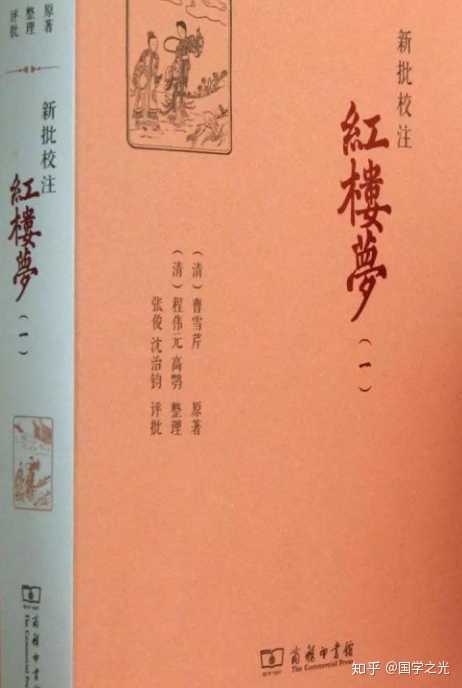 新批校注
紅樓夢
（一）
（清）曹雪芹 原著
（清）程伟元 高鹗 整理
张俊 沈治钧 评批
商務印書館
The Commercial Press
原著
整理
评批
新批校注
紅樓夢
（一）
商務印書館
The Commercial Press
知乎 @国学之光